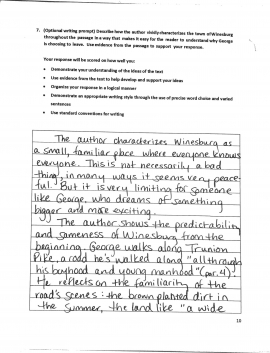 7. (Optional writing prompt) Describe how the author vividly characterizes the town of Winesburg
throughout the passage in a way that makes it easy for the reader to understand why George
is choosing to leave. Use evidence from the passage to support your response.
Your response will be scored on how well you:
• Demonstrate your understanding of the ideas of the text
• Use evidence from the text to help develop and support your ideas
• Organize your response in a logical manner
• Demonstrate an appropriate writing style through the use of precise word choice and varied
sentences
• Use standard conventions for writing
The author characterizes Winesburg as
a small, familiar place where everyone knows
everyone. This is not necessarily a bad
thing, in many ways it seems very peace-
ful. But it is very limiting for someone
like George, who dreams of something
bigger and more exciting.
The author shows the predictability
and sameness of Winesburg from the
beginning. George walks along Trunion
Pike, a road he's walked along "all through
his boyhood and young manhood" (par. 4).
He reflects on the familiarity of the
road's scenes: the brown planted dirt in
the summer, the land like "a wide
10